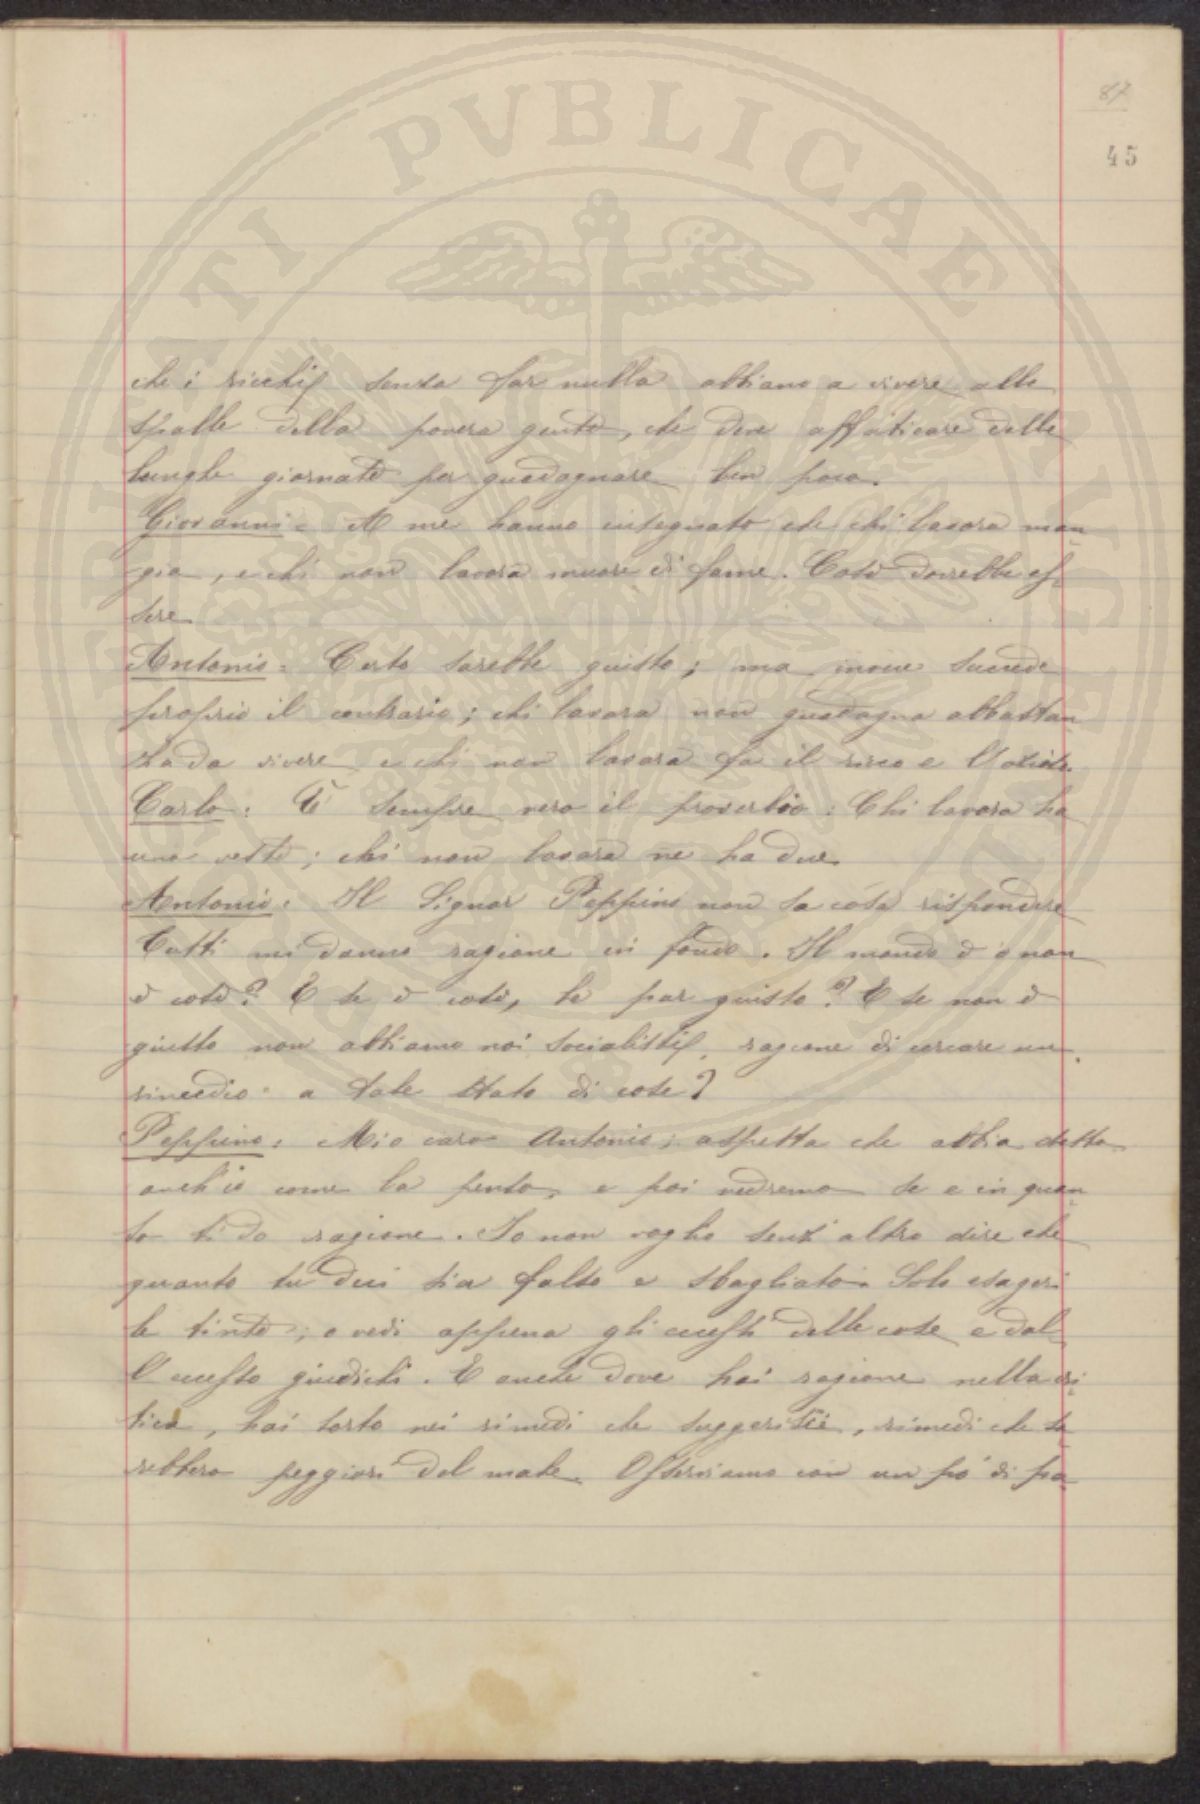 87
45
che i ricchi senza far nulla abbiano a vivere alle
spalle della povera gente, che deve affaticare delle
lunghe giornate per guadagnare ben poco.
Giovanni - A me hanno insegnato che chi lavora man-
gia, e chi non lavora muore di fame. Così dovrebbe es-
sere
Antonio - Certo sarebbe giusto; ma invece succede
proprio il contrario; chi lavora non guadagna abbastan-
za da vivere e chi non lavora fa il ricco e l'ozioso.
Carlo: È sempre vero il proverbio: Chi lavora ha
una veste; chi non lavora ne ha due.
Antonio: Il Signor Peppino non sa cosa rispondere
Tutti mi danno ragione in fondo. Il mondo è o non
è così? E se è così, le par giusto? E se non è
giusto non abbiamo noi socialisti, ragione di cercare un
rimedio a tale stato di cose?
Peppino: Mio caro Antonio; aspetta che abbia detto
anch'io come la penso, e poi vedremo se e in quan-
to ti do ragione. Io non voglio senz'altro dire che
quanto tu dici sia falso e sbagliato. Solo esageri
le tinte; o vedi appena gli eccessi delle cose e dal-
l'eccesso giudichi. E anche dove hai ragione nella cri-
tica, hai torto nei rimedi che suggerisci, rimedi che sa-
rebbero peggiori del male. Osserviamo con un po' di pa-
PVBLICAE